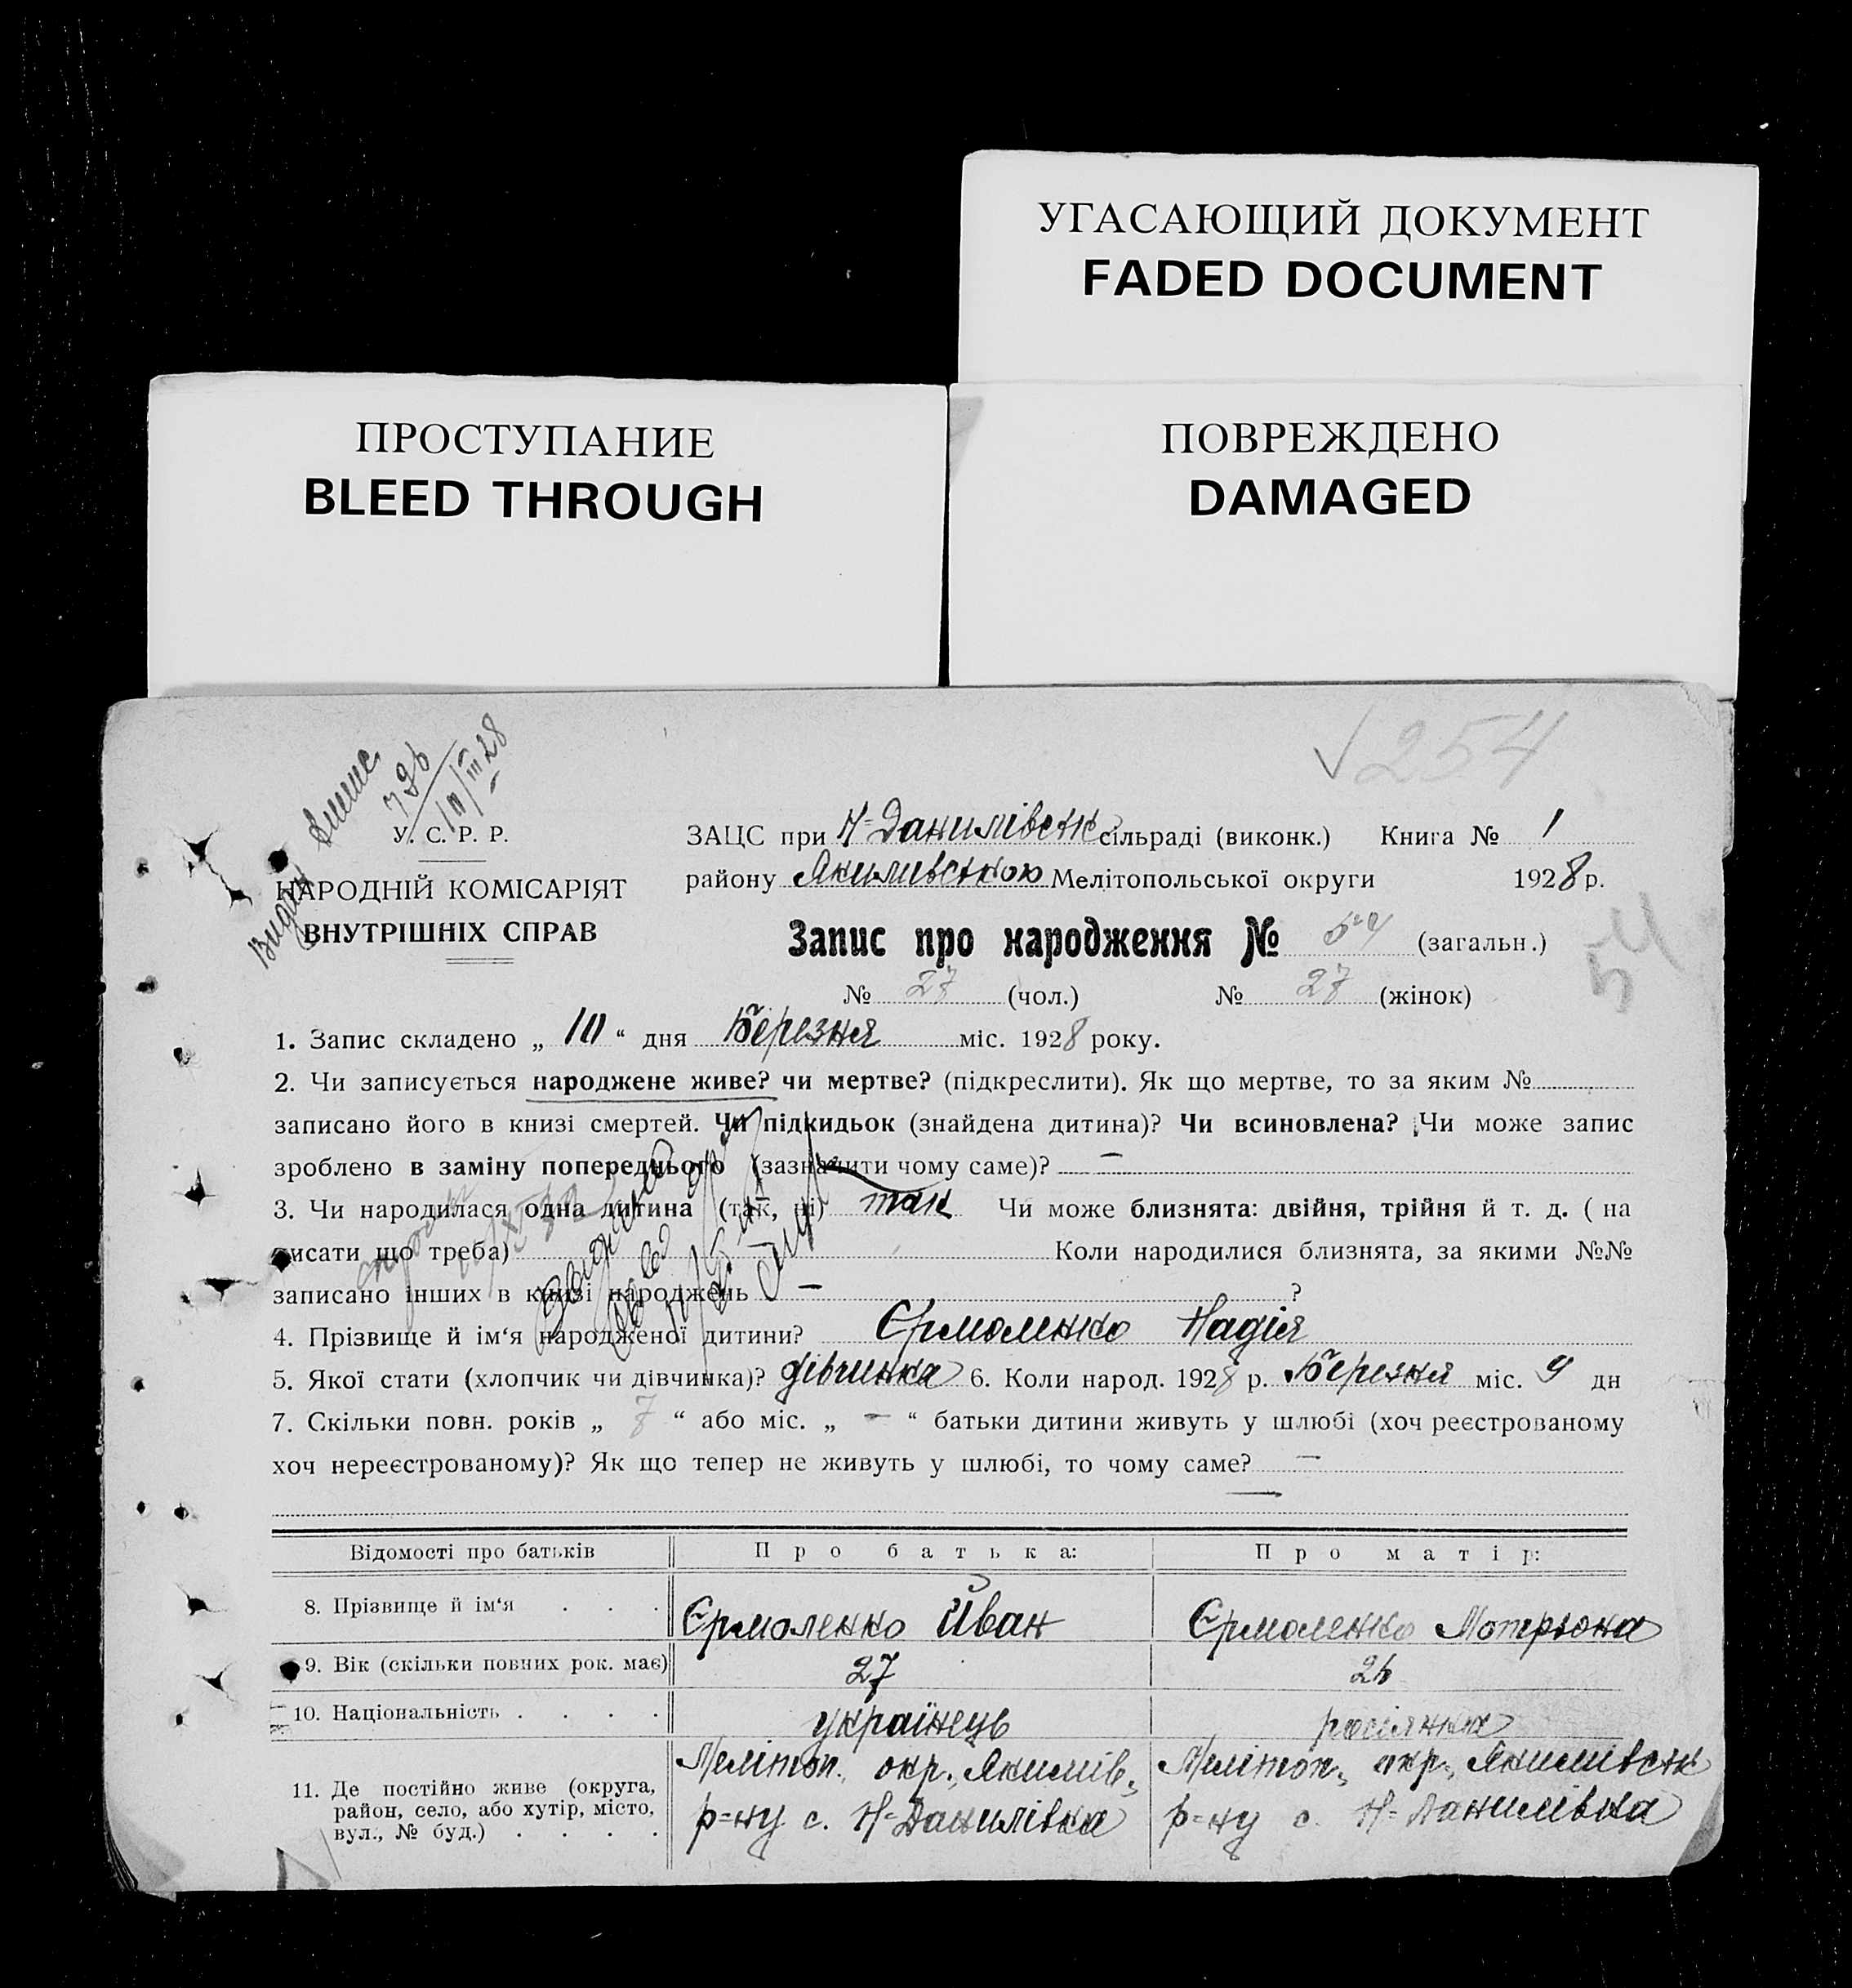 УГАСАЮЩИЙ ДОКУМЕНТ
FADED DOCUMENT
ПРОСТУПАНИЕ
BLEED THROUGH
ПОВРЕЖДЕНО
DAMAGED
254
10/III 28
У. С. Р. Р.
НАРОДНІЙ КОМІСАРІЯТ
ВНУТРІШНІХ СПРАВ
ЗАЦС при Н-Данилівськ сільраді (виконк.) Книга № 1
району Якимивською Мелітопольської округи 1928 р.
Запис про народження № 54 (загальн.)
54
№ 27 (чол.) № 27 (жінок)
1. Запис складено „ 10 “ дня Березня міс. 1928 року.
2. Чи записується народжене живе? чи мертве? (підкреслити). Як що мертве, то за яким №
записано його в книзі смертей. Чи підкидьок (знайдена дитина)? Чи всиновлена? Чи може запис
зроблено в заміну попереднього (зазначити чому саме)? —
3. Чи народилася одна дитина (так, ні) так Чи може близнята: двійня, трійня й т. д. ( на
писати що треба) Коли народилися близнята, за якими №№
записано інших в книзі народжень — ?
4. Прізвище й ім‘я народженої дитини? Єрмоленко Надія
5. Якої стати (хлопчик чи дівчинка)? дівчинка 6. Коли народ. 1928 р. Березня міс. 9 дн
7. Скільки повн. років „ 7 “ або міс. „ — “ батьки дитини живуть у шлюбі (хоч реєстрованому
хоч нереєстрованому)? Як що тепер не живуть у шлюбі, то чому саме? —
Відомості про батьків Про батька: Про матір:
8. Прізвище й ім‘я . . . Єрмоленко Йван Єрмоленко Мотрьона
9. Вік (скільки повних рок. має) 27 26
10. Національність . . . . українець росіянка
11. Де постійно живе (округа, район, село, або хутір, місто, вул., № буд.) . . . .
Мелітоп. окр., Якимів.
р=ну с. Н=Данилівка
Мелітоп. окр., Якимивськ
р=ну с. Н=Данилівка